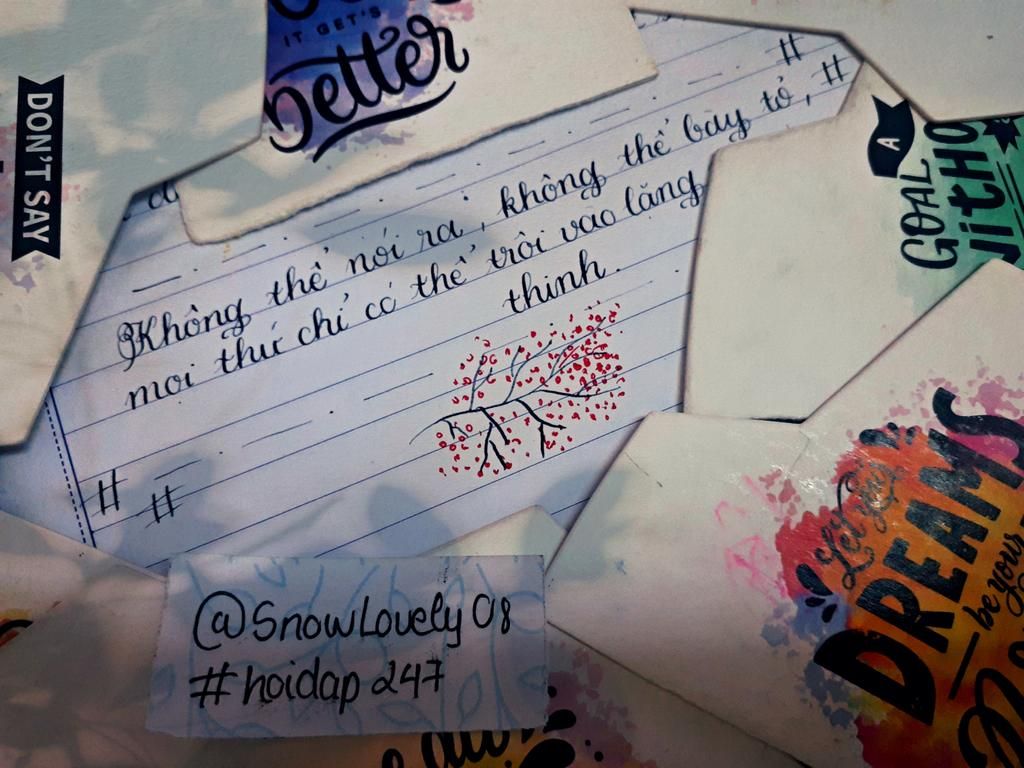 IT GET'S
better
DON'T SAY
#
Không thể nói ra, không thể bày tỏ, #
mọi thứ chỉ có thể trôi vào lặng
thinh.
A
GOAL
# #
Let your
DREAMS
be your
@SnowLovely08
#hoidap247